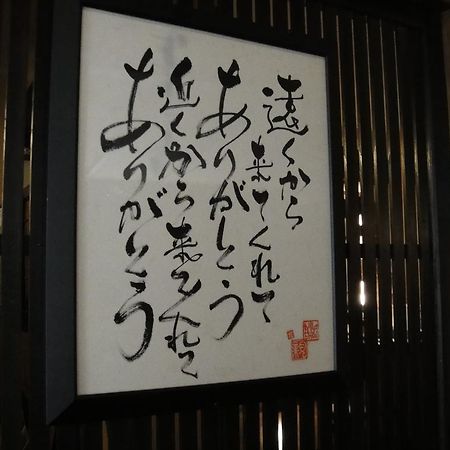 遠くから
来てくれて
ありがとう
近くから
来てくれて
ありがとう